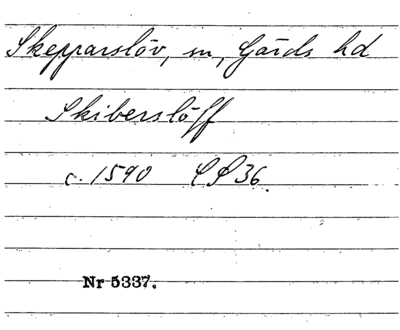 Skepparslöv, sn, Gärds hd
Skiberslöff
c. 1590 LP 36.
Nr 5337.